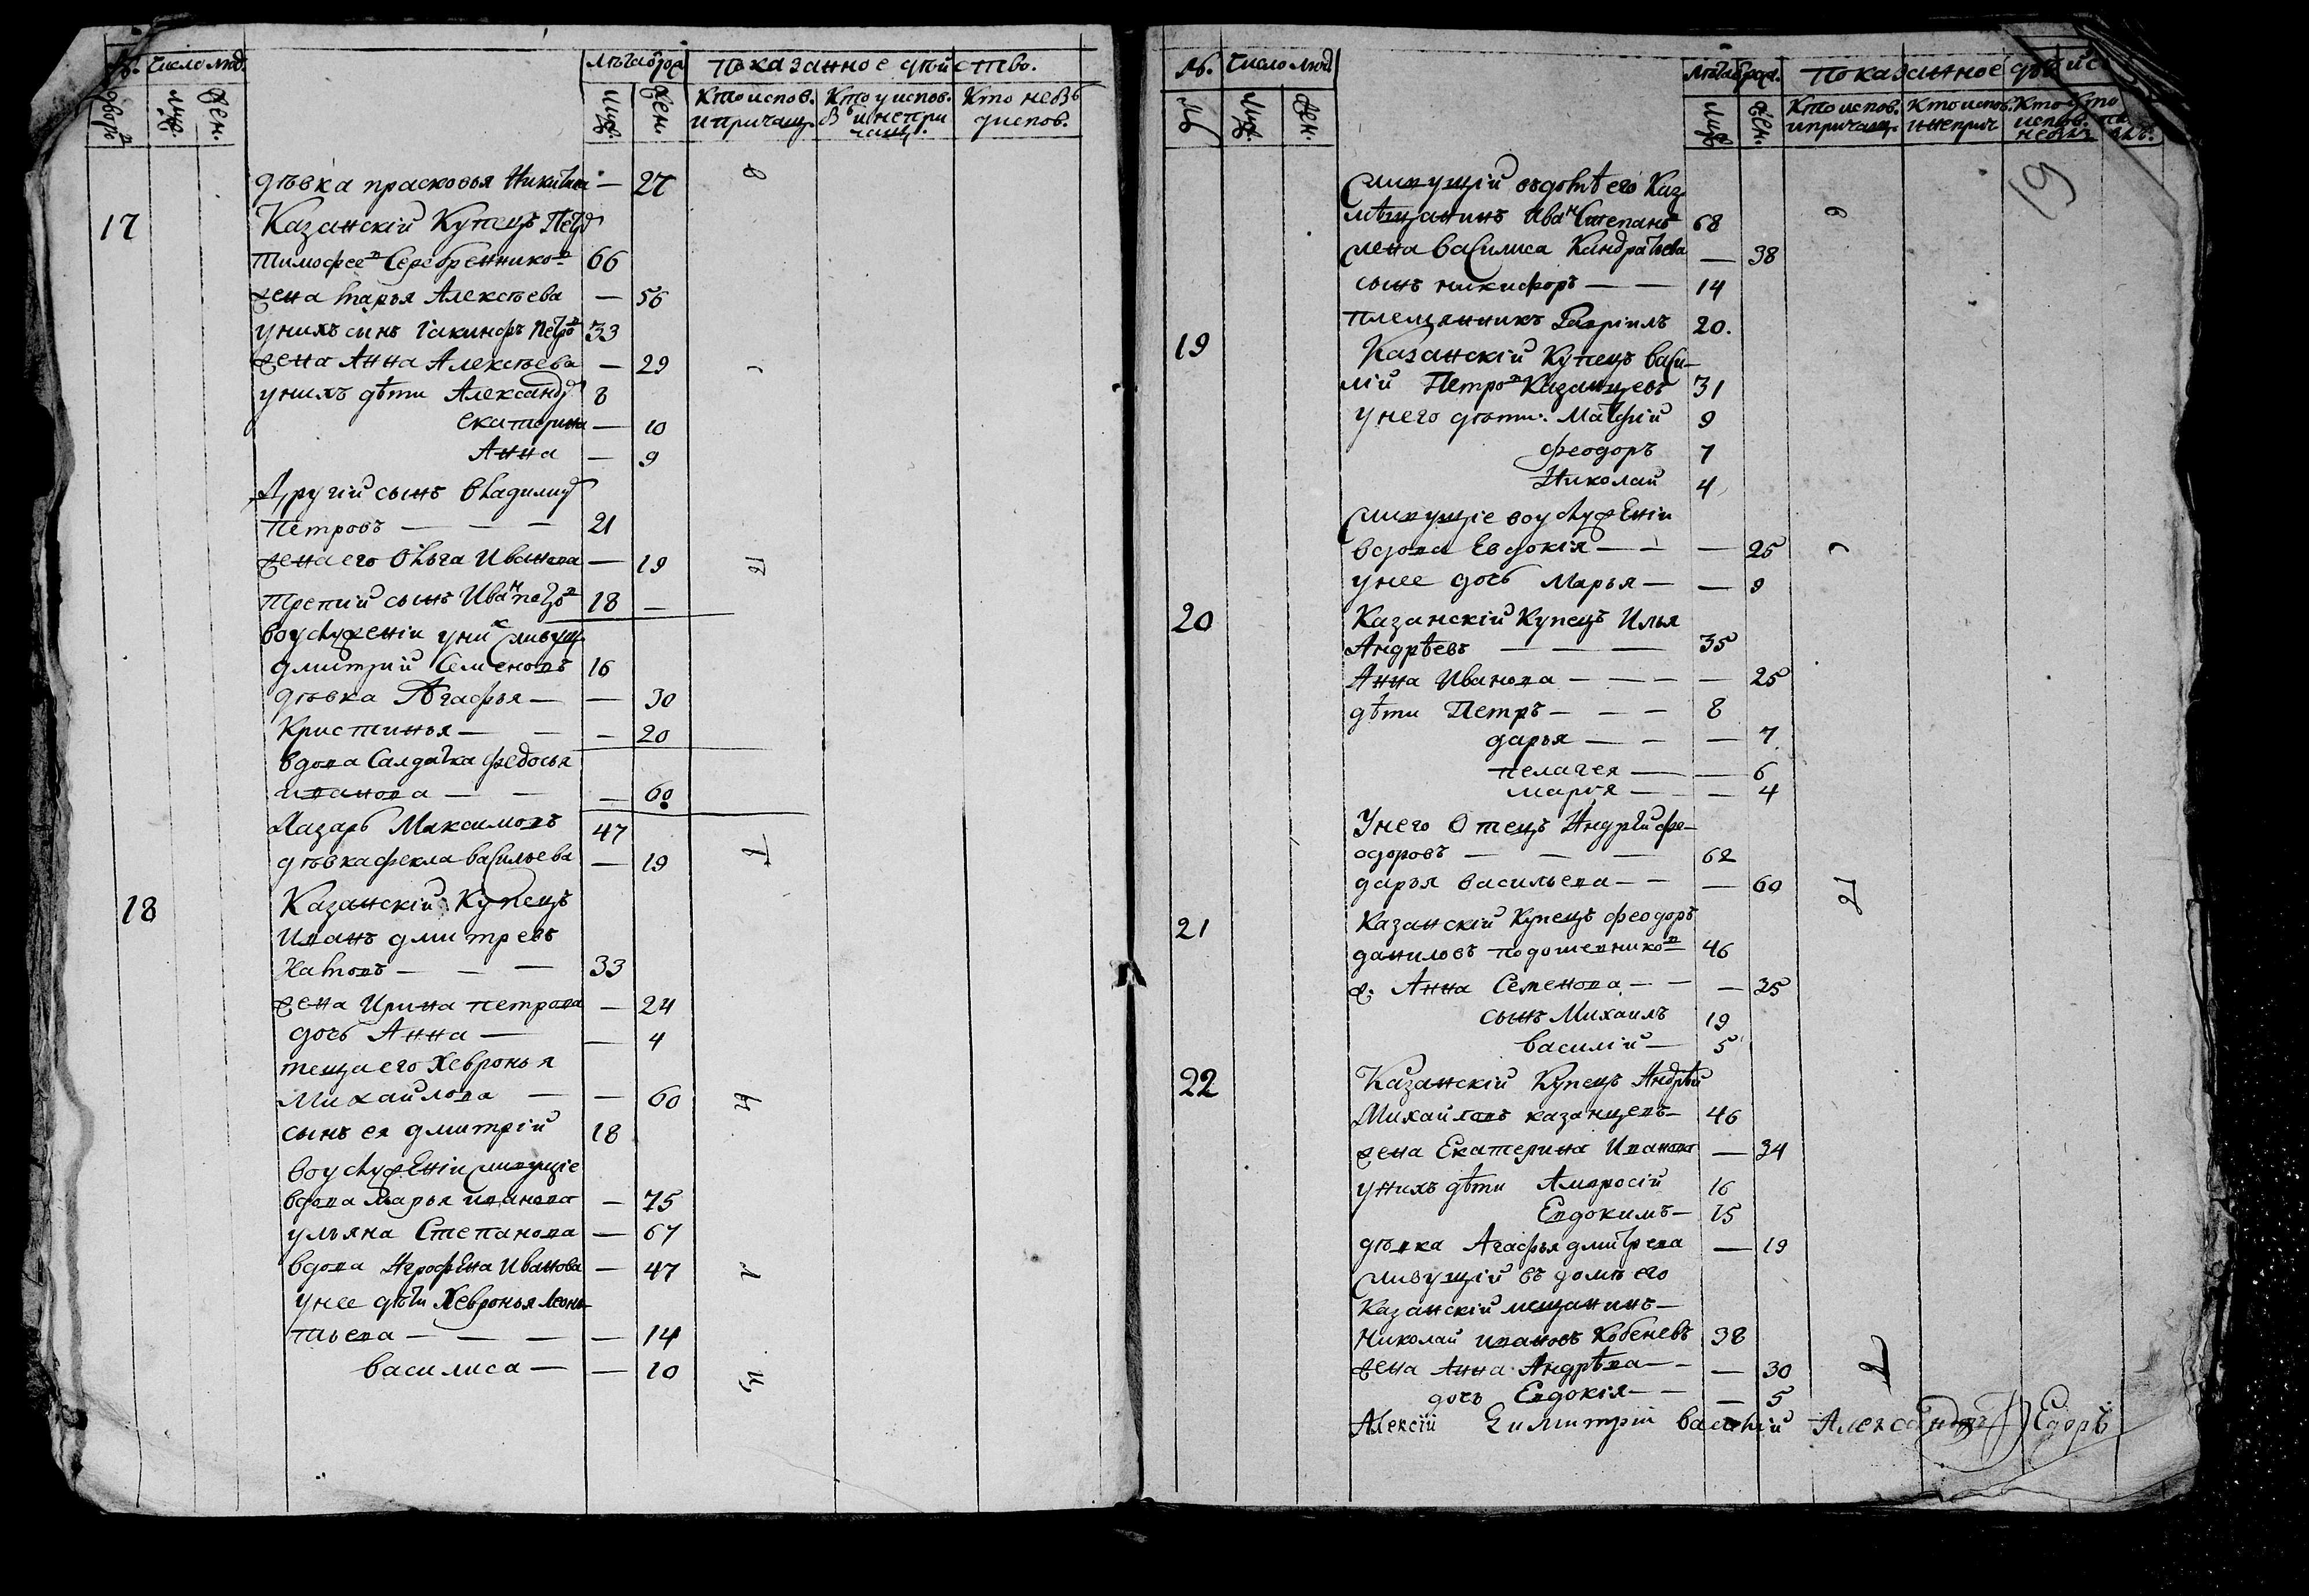 №. число люд.
лѣта от рож
показанное дѣйство.
дворо въ
муж.
жен.
муж.
жен.
Кто испов. и причащ.
Кто у испов. в ъ и не при чащ.
Кто не въ у испов.
дѣвка прасковья Никитина — 27
17 Казанскій Купецъ Петръ
тимофеевъ Серебренниковъ 66
жена марья Алексѣева — 56
у нихъ синъ Iакинфъ петровъ 33
жена Анна Алексѣева — 29
у нихъ дѣти Александръ 8
екатерина — 10
Анна — 9
Другій сынъ владимиръ
петровъ — — — 21
жена его Ольга Иванова — 19
третий сынъ Иванъ петровъ 18 —
во услуженіи у нихъ живущ.
дмитрий Семеновъ 16
дѣвка Агафья — — 30
Кристинья — — — 20
вдова Салдатка федосья
иванова — — — 60
Лазарь Максимовъ 47
дѣвка фекла васильева — 19
18 Казанскій Купецъ
Иванъ дмитревъ
Хатовъ — — — 33
жена Ирина петрова — 24
дочь Анна — — 4
теща его Хевронья
Михайлова — — 60
сынъ ея дмитрій 18
во услуженіи живущіе
вдова Марья иванова — 75
ульяна Степанова — 67
вдова Агрофена Иванова — 47
у нее дѣти Хевронья Леонь-
тьева — — — — 14
василиса — — 10
№. число люд
лѣта от рожд.
показанное дѣйс
№
муж.
жен.
муж.
жен.
Кто испов. и причащ.
Кто испов. и не прич
19
живущій въ домѣ его Каз.
мѣщанинъ Иванъ Степановъ 68
жена василиса Кандратьева — 38
сынъ никифоръ — — 14
племянникъ Гавріилъ 20.
19 Казанскій Купецъ васи-
лій Петровъ Казанцевъ 31
у него дѣти: Матфій 9
феодоръ 7
Николай 4
живущіе во услуженіи
вдова Евдокія — — — 25
у нее дочь Марья — — 9
20 Казанскій Купецъ Илья
Андрѣевъ — — — 35
Анна Иванова — — — — 25
дѣти Петръ — — — 8
дарья — — — 7
пелагея — — 6
марья — — 4
У него Отецъ Андрѣй фе-
одоровъ — — — 62
дарья васильева — — — 60
21 Казанскій Купецъ феодоръ
даниловъ подошевниковъ 46
ж. Анна Семенова — — — 35
сынъ Михаилъ 19
василій — 5
22 Казанскій Купецъ Андрѣй
Михайловъ казанцевъ — 46
жена Екатерина Иванова — 34
у нихъ дѣти Амвросій 16
Евдокимъ — 15
дѣвка Агафья дмитрева — 19
живущій въ домѣ его
Казанскій мещанинъ —
николай ивановъ Кобеневъ 38
жена Анна Андрѣва — — — 30
дочь Евдокія — — — 5
Алексій Димитрій василій Александръ Едоръ